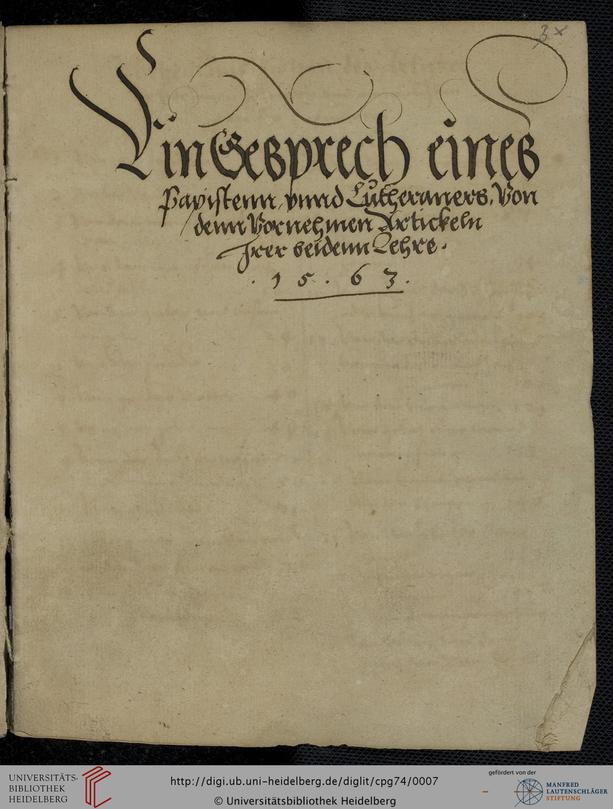 3x
Ein Gesprech eines
Papistenn, vnnd Lutheraners, Von
denn Vornehmen Artickeln
Jrer beidenn Lehre.
. 1 5 . 6 3 .
UNIVERSITÄTS-
BIBLIOTHEK
HEIDELBERG
http://digi.ub.uni-heidelberg.de/diglit/cpg74/0007
© Universitätsbibliothek Heidelberg
gefördert von der
MANFRED
LAUTENSCHLÄGER
STIFTUNG